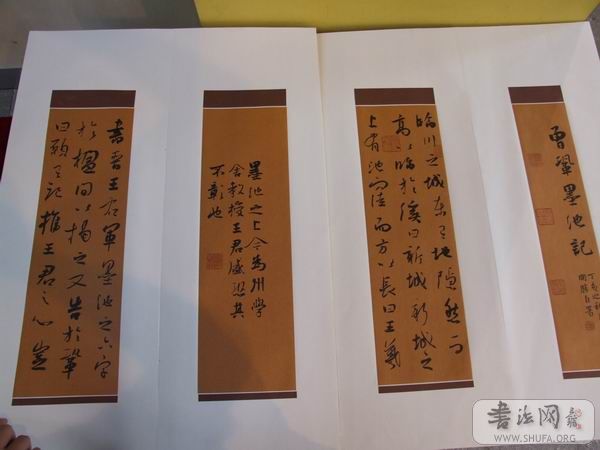 曾鞏墨池記
丁亥之秋
臨川之城東有地隱然而
高以臨於溪曰新城新城之
上有池洼而方以長曰王羲
墨池之上今為州學
舍教授王君盛恐其
不彰也
書晉王右軍墨池之六字
於楹間以揭之又告於鞏
曰願有記推王君之心豈
书法网
WWW.SHUFA.ORG